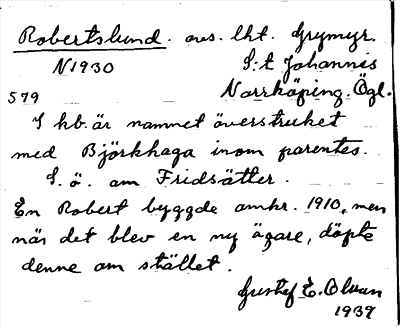 Robertslund. avs. lht. Grymyr.
N1930 S:t Johannis
579 Norrköping. Ögl.
I kb. är namnet överstruket
med Björkhaga inom parentes.
S. ö. om Fridsätter.
En Robert byggde omkr. 1910, men
när det blev en ny ägare, döpte
denne om stället.
Gustaf E. Olman
1939